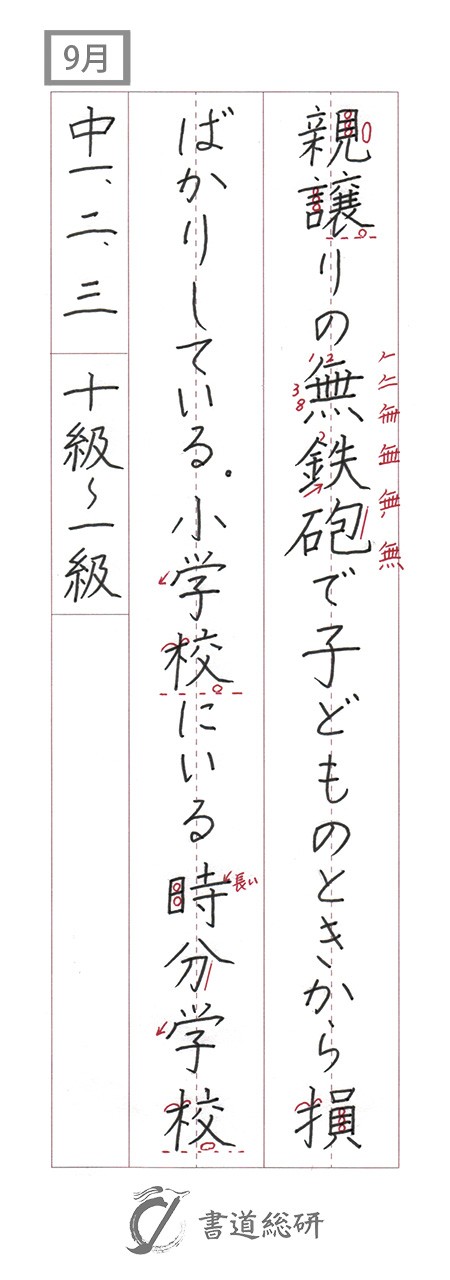 9月
親譲りの無鉄砲で子どものときから損
ばかりしている。小学校にいる時分学校
中一、二、三 十級〜一級
1 2
3
8
2
無
長い
書道総研